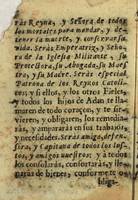 rás Reyna, y Señora de todos
los mortales para mandar, y de-
tener la muerte, y conservar su
vida. Serás Emperatriz, y Seño-
ra de la Iglesia Militante, su
Protectora, su Abogada, su Maes-
tra, y su Madre. Serás especial
Patrona de los Reynos Catoli-
cos; y si ellos, y los otros Fieles,
y todos los hijos de Adan te lla-
maren de todo corazon, y te sir-
vieren, y obligaren, los remedia-
rás, y ampararás en sus trabajos,
y necesidades. Serás amiga, defen-
sora, y Capitana de todos los jus-
tos, y amigos nuestros; y á todos
los consolarás, confortarás, y lle-
narás de bienes, conforme te o-
bliga-